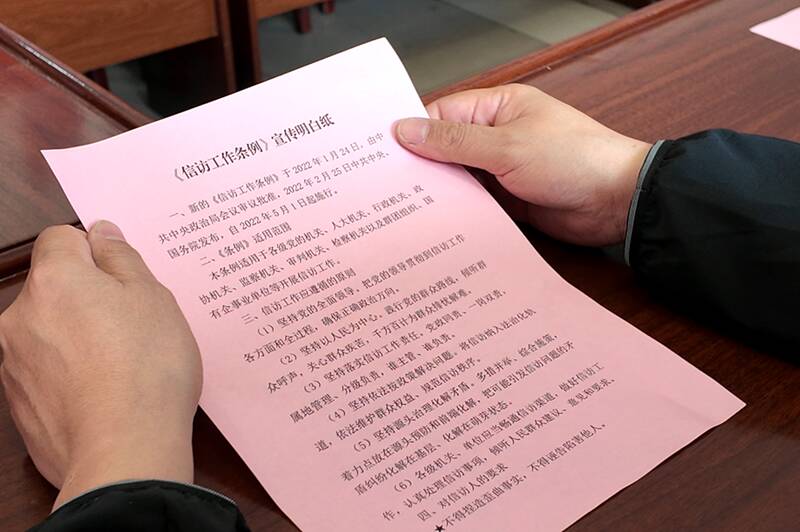 《信访工作条例》宣传明白纸
一、新的《信访工作条例》于2022年1月24日，由中
共中央政治局会议审议批准，2022年2月25日中共中央、
国务院发布，自2022年5月1日起施行。
二、《条例》适用范围
本条例适用于各级党的机关、人大机关、行政机关、政
协机关、监察机关、审判机关、检察机关以及群团组织、国
有企事业单位等开展信访工作。
三、信访工作应遵循的原则
（1）坚持党的全面领导。把党的领导贯彻到信访工作
各方面和全过程，确保正确政治方向。
（2）坚持以人民为中心。践行党的群众路线，倾听群
众呼声，关心群众疾苦，千方百计为群众排忧解难。
（3）坚持落实信访工作责任。党政同责、一岗双责，
属地管理、分级负责，谁主管、谁负责。
（4）坚持依法按政策解决问题。将信访纳入法治化轨
道，依法维护群众权益、规范信访秩序。
（5）坚持源头治理化解矛盾。多措并举、综合施策，
着力点放在源头预防和前端化解，把可能引发信访问题的矛
盾纠纷化解在基层、化解在萌芽状态。
（6）各级机关、单位应当畅通信访渠道，做好信访工
作，认真处理信访事项，倾听人民群众建议、意见和要求。
四、对信访人的要求
★不得捏造歪曲事实，不得诬告陷害他人。